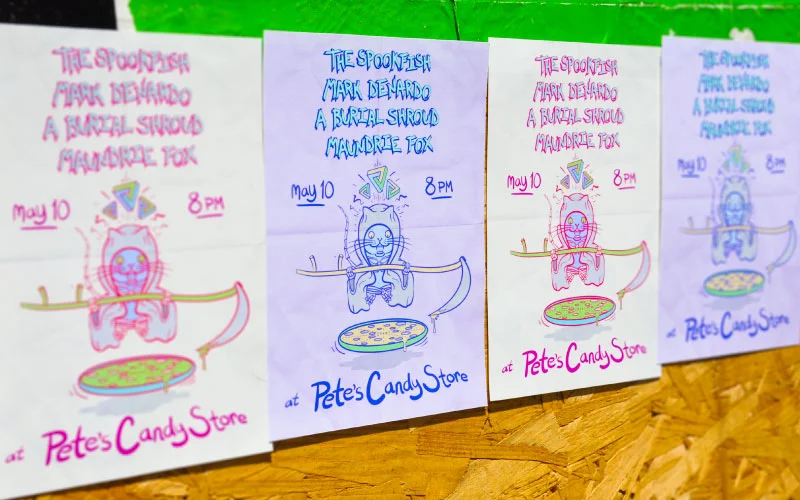 THE SPOOKFISH
MARK DENARDO
A BURIAL SHROUD
MAUNDRIE FOX
May 10 8PM
at Pete's Candy Store
THE SPOOKFISH
MARK DENARDO
A BURIAL SHROUD
MAUNDRIE FOX
May 10 8PM
at Pete's Candy Store
THE SPOOKFISH
MARK DENARDO
A BURIAL SHROUD
MAUNDRIE FOX
May 10 8PM
at Pete's Candy Store
THE SPOOKFISH
MARK DENARDO
A BURIAL SHROUD
MAUNDRIE FOX
May 10 8PM
at Pete's Candy Store